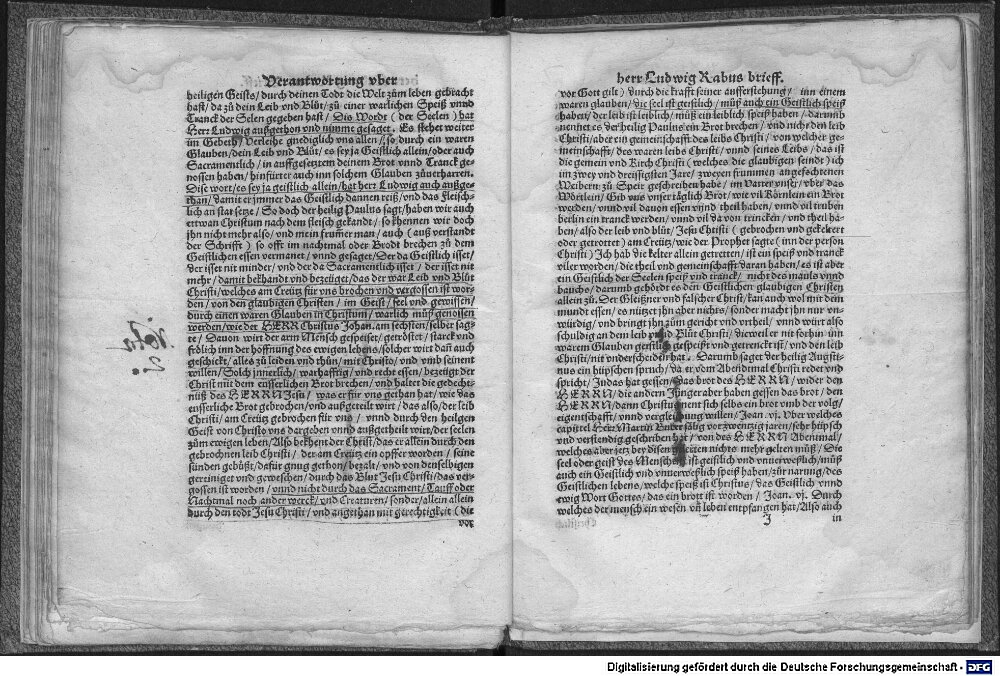 Verantwortung vber
heiligen Geists / durch deinen Todt die Welt zům leben gebracht
hast / da zů dein Leib vnd Blůt / zů einer warlichen Speiß vnnd
Tranck der Selen gegeben hast / Dis Wordt (der Seelen) hat
Herr Ludwig außgethon vnd nimme gesaget. Es stehet weiter
im Gebeth / Verleihe gnediglich vns allen / so durch ein waren
Glauben / dein Leib vnd Blůt / es sey ja Geistlich allein / oder auch
Sacramentlich / in auffgesetztem deinem Brot vnnd Tranck ge-
nossen haben / hinfürter auch inn solchem Glauben zůuerharren.
Dise wort / es sey ja geistlich allein / hat herr Ludwig auch außge-
than / damit er jmmer das Geistlich dannen reiß / vnd das Fleisch-
lich an stat setze / So doch der heilig Paulus sagt / haben wir auch
ettwan Christum nach dem fleisch gekandt / so khennen wir doch
jhn nicht mehr also / vnd mein frum̃er man / auch (auß verstandt
der Schrifft) so offt im nachtmal oder Brodt brechen zů dem
Geistlichen essen vermanet / vnnd gesaget / Der da Geistlich isset /
der isset nit minder / vnd der da Sacramentlich isset / der isset nit
mehr / damit bekhandt vnd bezeüget / das der war Leib vnd Blůt
Christi / welches am Creütz für vns brochen vnd vergossen ist wor-
den / von den glaubigen Christen / im Geist / seel vnd gewissen /
durch einen waren Glauben in Christum / warlich můß genossen
werden / wie der HERR Christus Johan. am sechsten / selber sag-
te / Dauon wirt der arm Mensch gespeiset / getröstet / starck vnd
frölich inn der hoffnung des ewigen lebens / solcher wirt dañ auch
geschickt / alles zů leiden vnd thůn / mit Christo / vnd vmb seinent
willen / Solch jnnerlich / warhafftig / vnd recht essen / bezeügt der
Christ mit dem eusserlichen Brot brechen / vnd haltet die gedecht-
nüß des HERRN Jesu / was er für vns gethan hat / wie das
eusserliche Brot gebrochen / vnd außgeteilt wirt / das also / der leib
Christi / am Creütz gebrochen für vns / vnnd durch den heilgen
Geist von Christo vns dargeben vnnd außgetheilt wirt / der seelen
zům ewigen leben / Also bekhent der Christ / das er allein durch den
gebrochnen leib Christi / der am Creütz ein opffer worden / seine
sünden gebüßt / dafür gnug gethon / bezalt / vnd von denselbigen
gereiniget vnd geweschen / durch das Blůt Jesu Christi / das ver-
gossen ist worden / vnnd nicht durch das Sacrament / Tauff oder
Nachtmal noch ander werck / vnd Creaturen / sonder / allein allein
durch den todt Jesu Christi / vnd angethan mit gerechtigkeit (die
vor
herr Ludwig Rabus brieff.
vor Gott gilt) durch die krafft seiner aufferstehung / inn einem
waren glauben / die seel ist geistlich / můß auch ein Geistlich speiß
haben / der leib ist leiblich / můß ein leiblich speiß haben / darumb
nennet es der heilig Paulus ein Brot brechen / vnd nicht den leib
Christi / aber ein gemeinschafft des leibs Christi / von welcher ge-
meinschafft / des waren leibs Christi / vnnd seines Leibs / das ist
die gemein vnd Kirch Christi (welches die glaubigen seindt) ich
im zwey vnd dreissigsten Jare / zweyen frummen angefochtenen
Weibern zů Speir geschreiben habe / im Vatter vnser / vber das
Wörtlein / Gib vns vnser täglich Brot / wie vil Körnlein ein Brot
werden / vnnd vil dauon essen vnnd theil haben / vnnd vil truben
berlin ein tranck werden / vnnd vil da von trincken / vnd theil ha-
ben / also / der leib vnd blůt / Jesu Christi (gebrochen vnd gekelteret
oder getrottet) am Creütz / wie der Prophet sagte (inn der person
Christi) Ich hab die kelter allein getretten / ist ein speiß vnd tranck
viler worden / die theil vnd gemeinschafft daran haben / es ist aber
ein Geistlich der Seelen speiß vnd tranck / nicht des mauls vnnd
bauchs / darumb gehördt es den Geistlichen glaubigen Christen
allein zů. Der Gleißner vnd falscher Christ / kan auch wol mit dem
mundt essen / es nützet jhn aber nichts / sonder macht jhn nur vn-
würdig / vnd bringt jhn zům gericht vnd vrtheil / vnnd würt also
schuldig an dem leib vnd Blůt Christi / dieweil er nit forhin inn
warem Glauben geistlich gespeißt vnd getrenckt ist / vnd den leib
Christi / nit vnderscheiden hat. Darumb saget der heilig Augusti-
nus ein hüpschen spruch / da er vom Abendtmal Christi redet vnd
spricht / Judas hat gessen / das brot des HERRN / wider den
HERRN / die andern Jünger aber haben gessen das brot / den
HERRN / dann Christus nent sich selbs ein brot vmb der volg /
eigenschafft / vnnd vergleichung willen / Joan. vj. Vber welches
capittel Herr Martin Butzer sälig vor zwentzig jaren / sehr hüpsch
vnd verstendig geschriben hat / von des HERRN Abenmal /
welches aber jetz bey disen zeiten nichts mehr gelten můß / Die
seel oder geist des Menschen ist geistlich vnd vnuerweßlich / můß
auch ein Geistlich vnd vnuerweßlich speiß haben / zůr narung / des
Geistlichen lebens / welche speiß ist Christus / das Geistlich vnnd
ewig Wort Gottes / das ein brott ist worden / Joan. vj. Durch
welches der mensch ein wesen vñ leben entpfangen hat / Also auch
J in
Digitalisierung gefördert durch die Deutsche Forschungsgemeinschaft - DFG